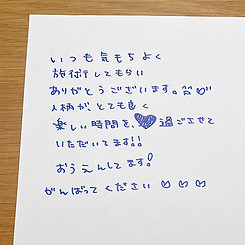 いつも気もちよく
施術してもらい
ありがとうございます。
人柄が、とても良く
楽しい時間を、過ごさせて
いただいてます!!
おうえんしてます!
がんばってください